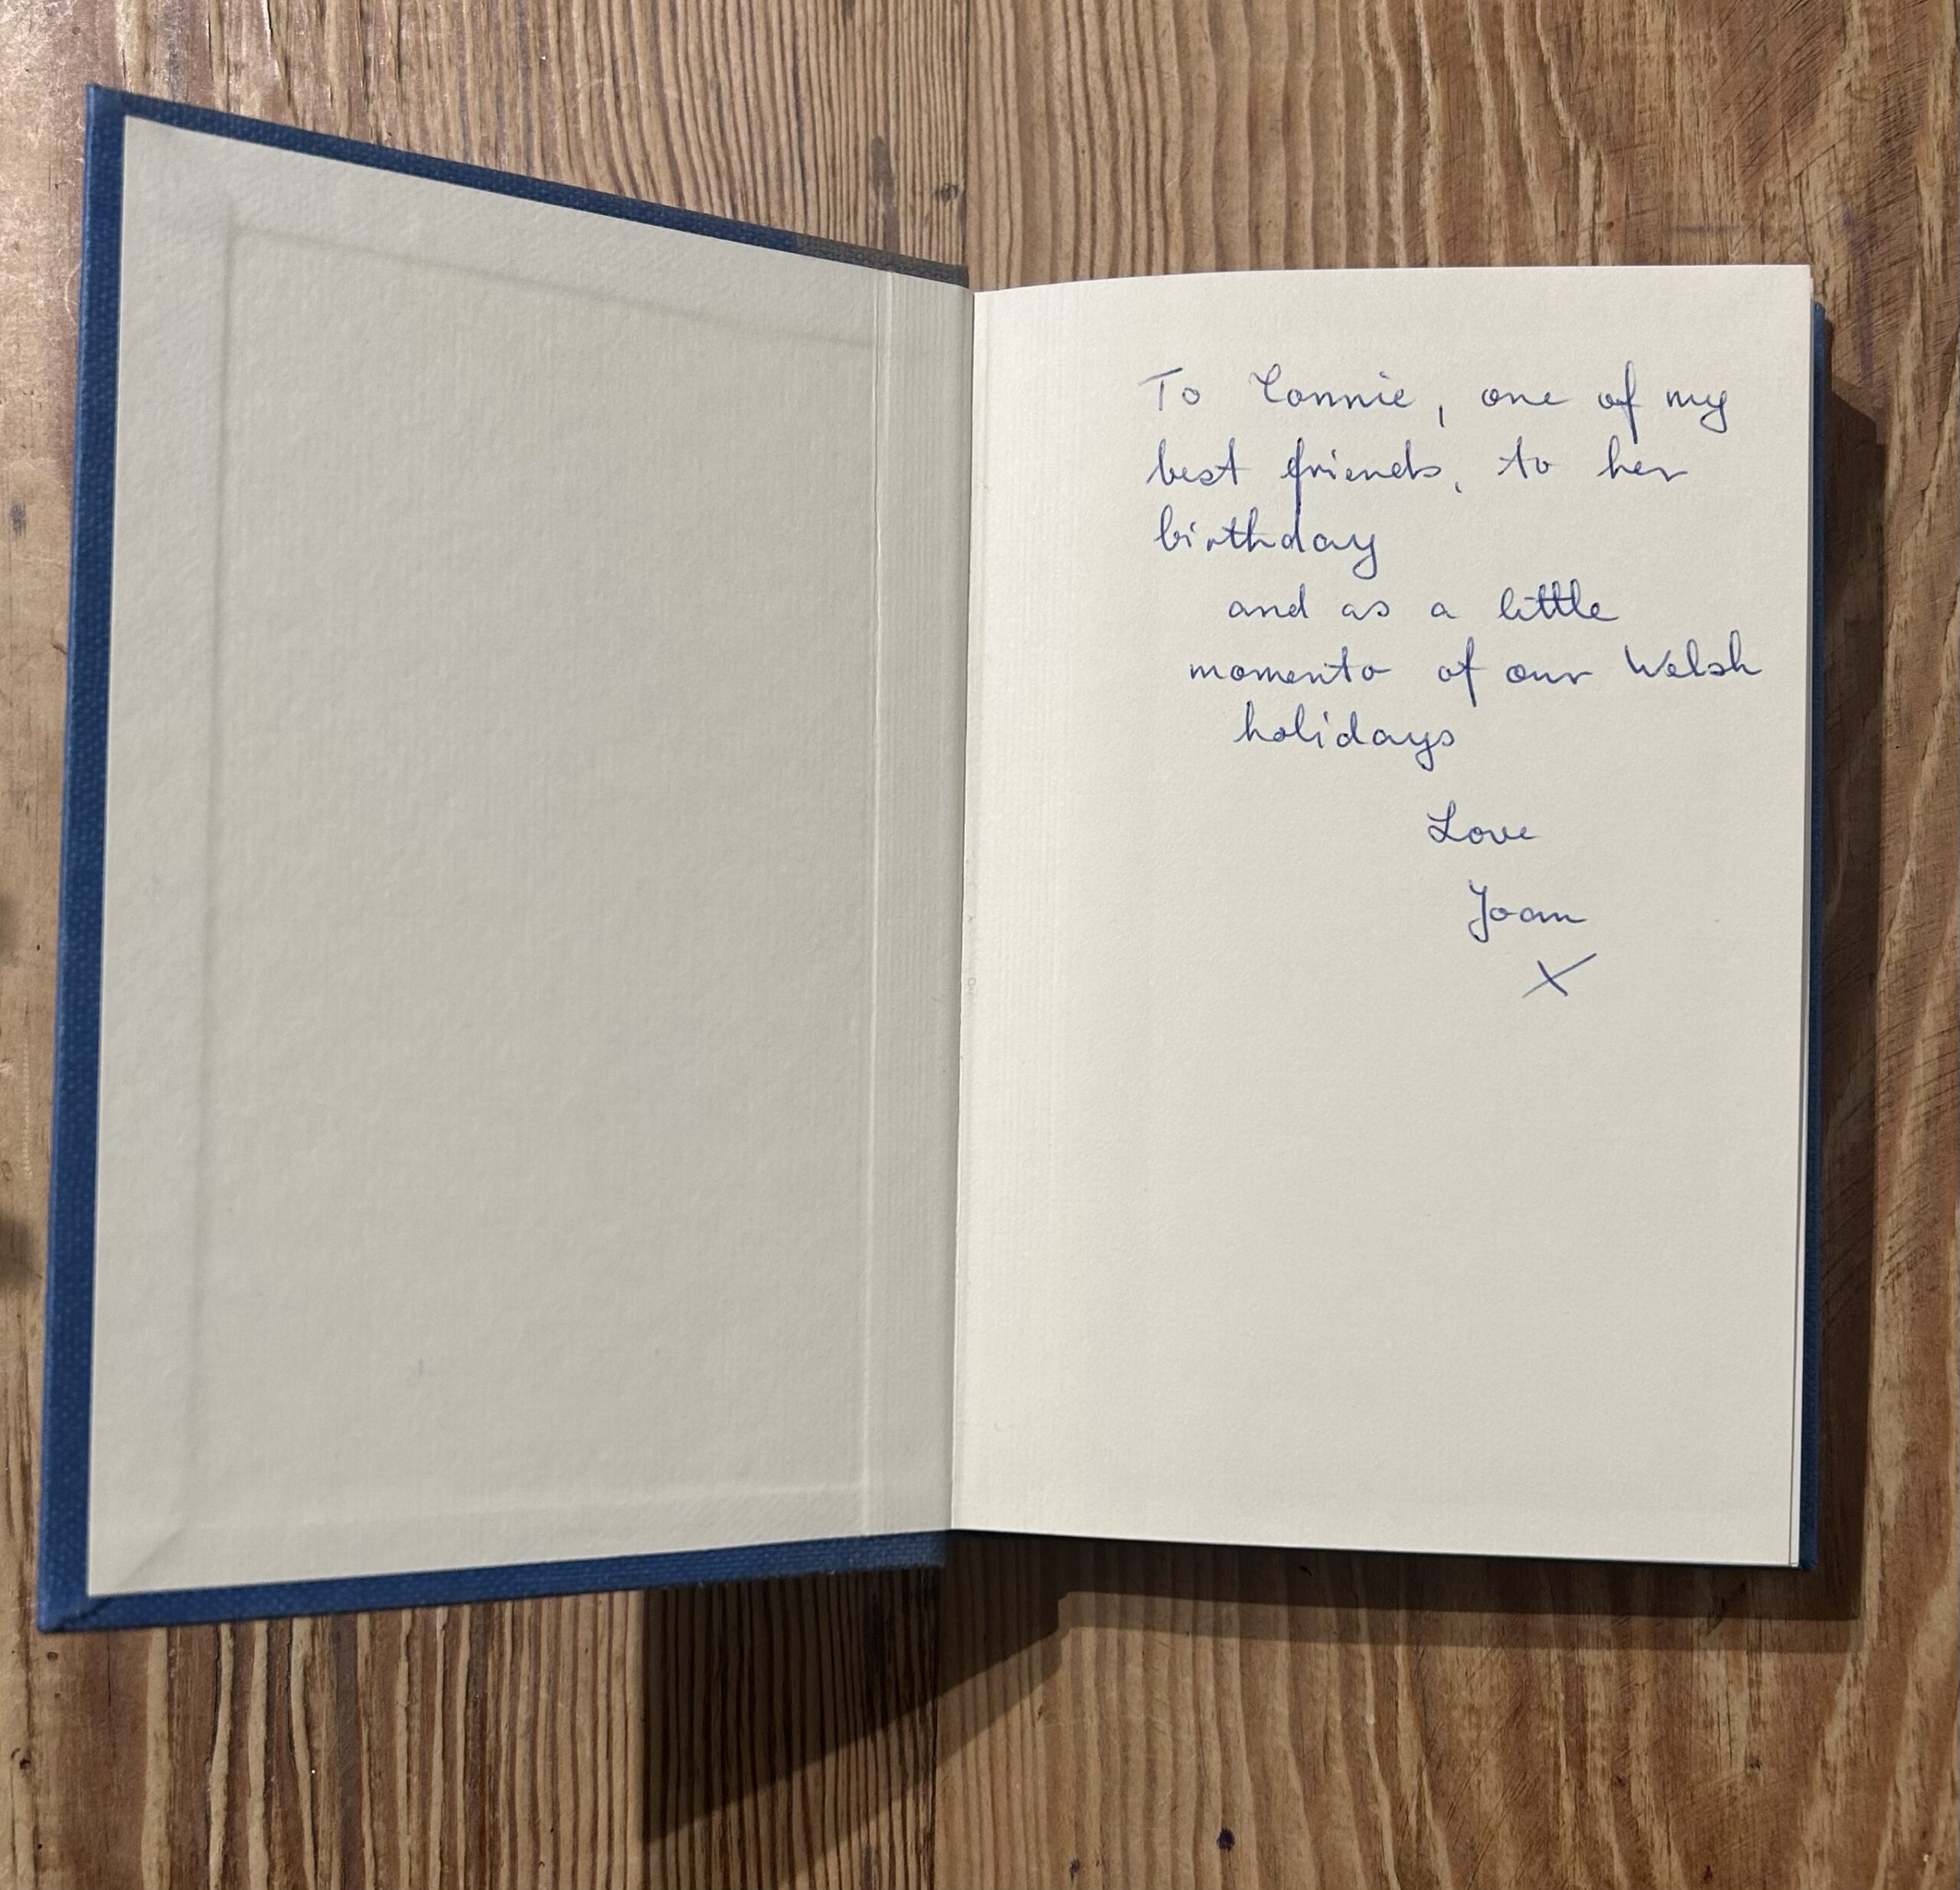 To Connie, one of my
best friends, to her
birthday
and as a little
momento of our Welsh
holidays
Love
Joan
X